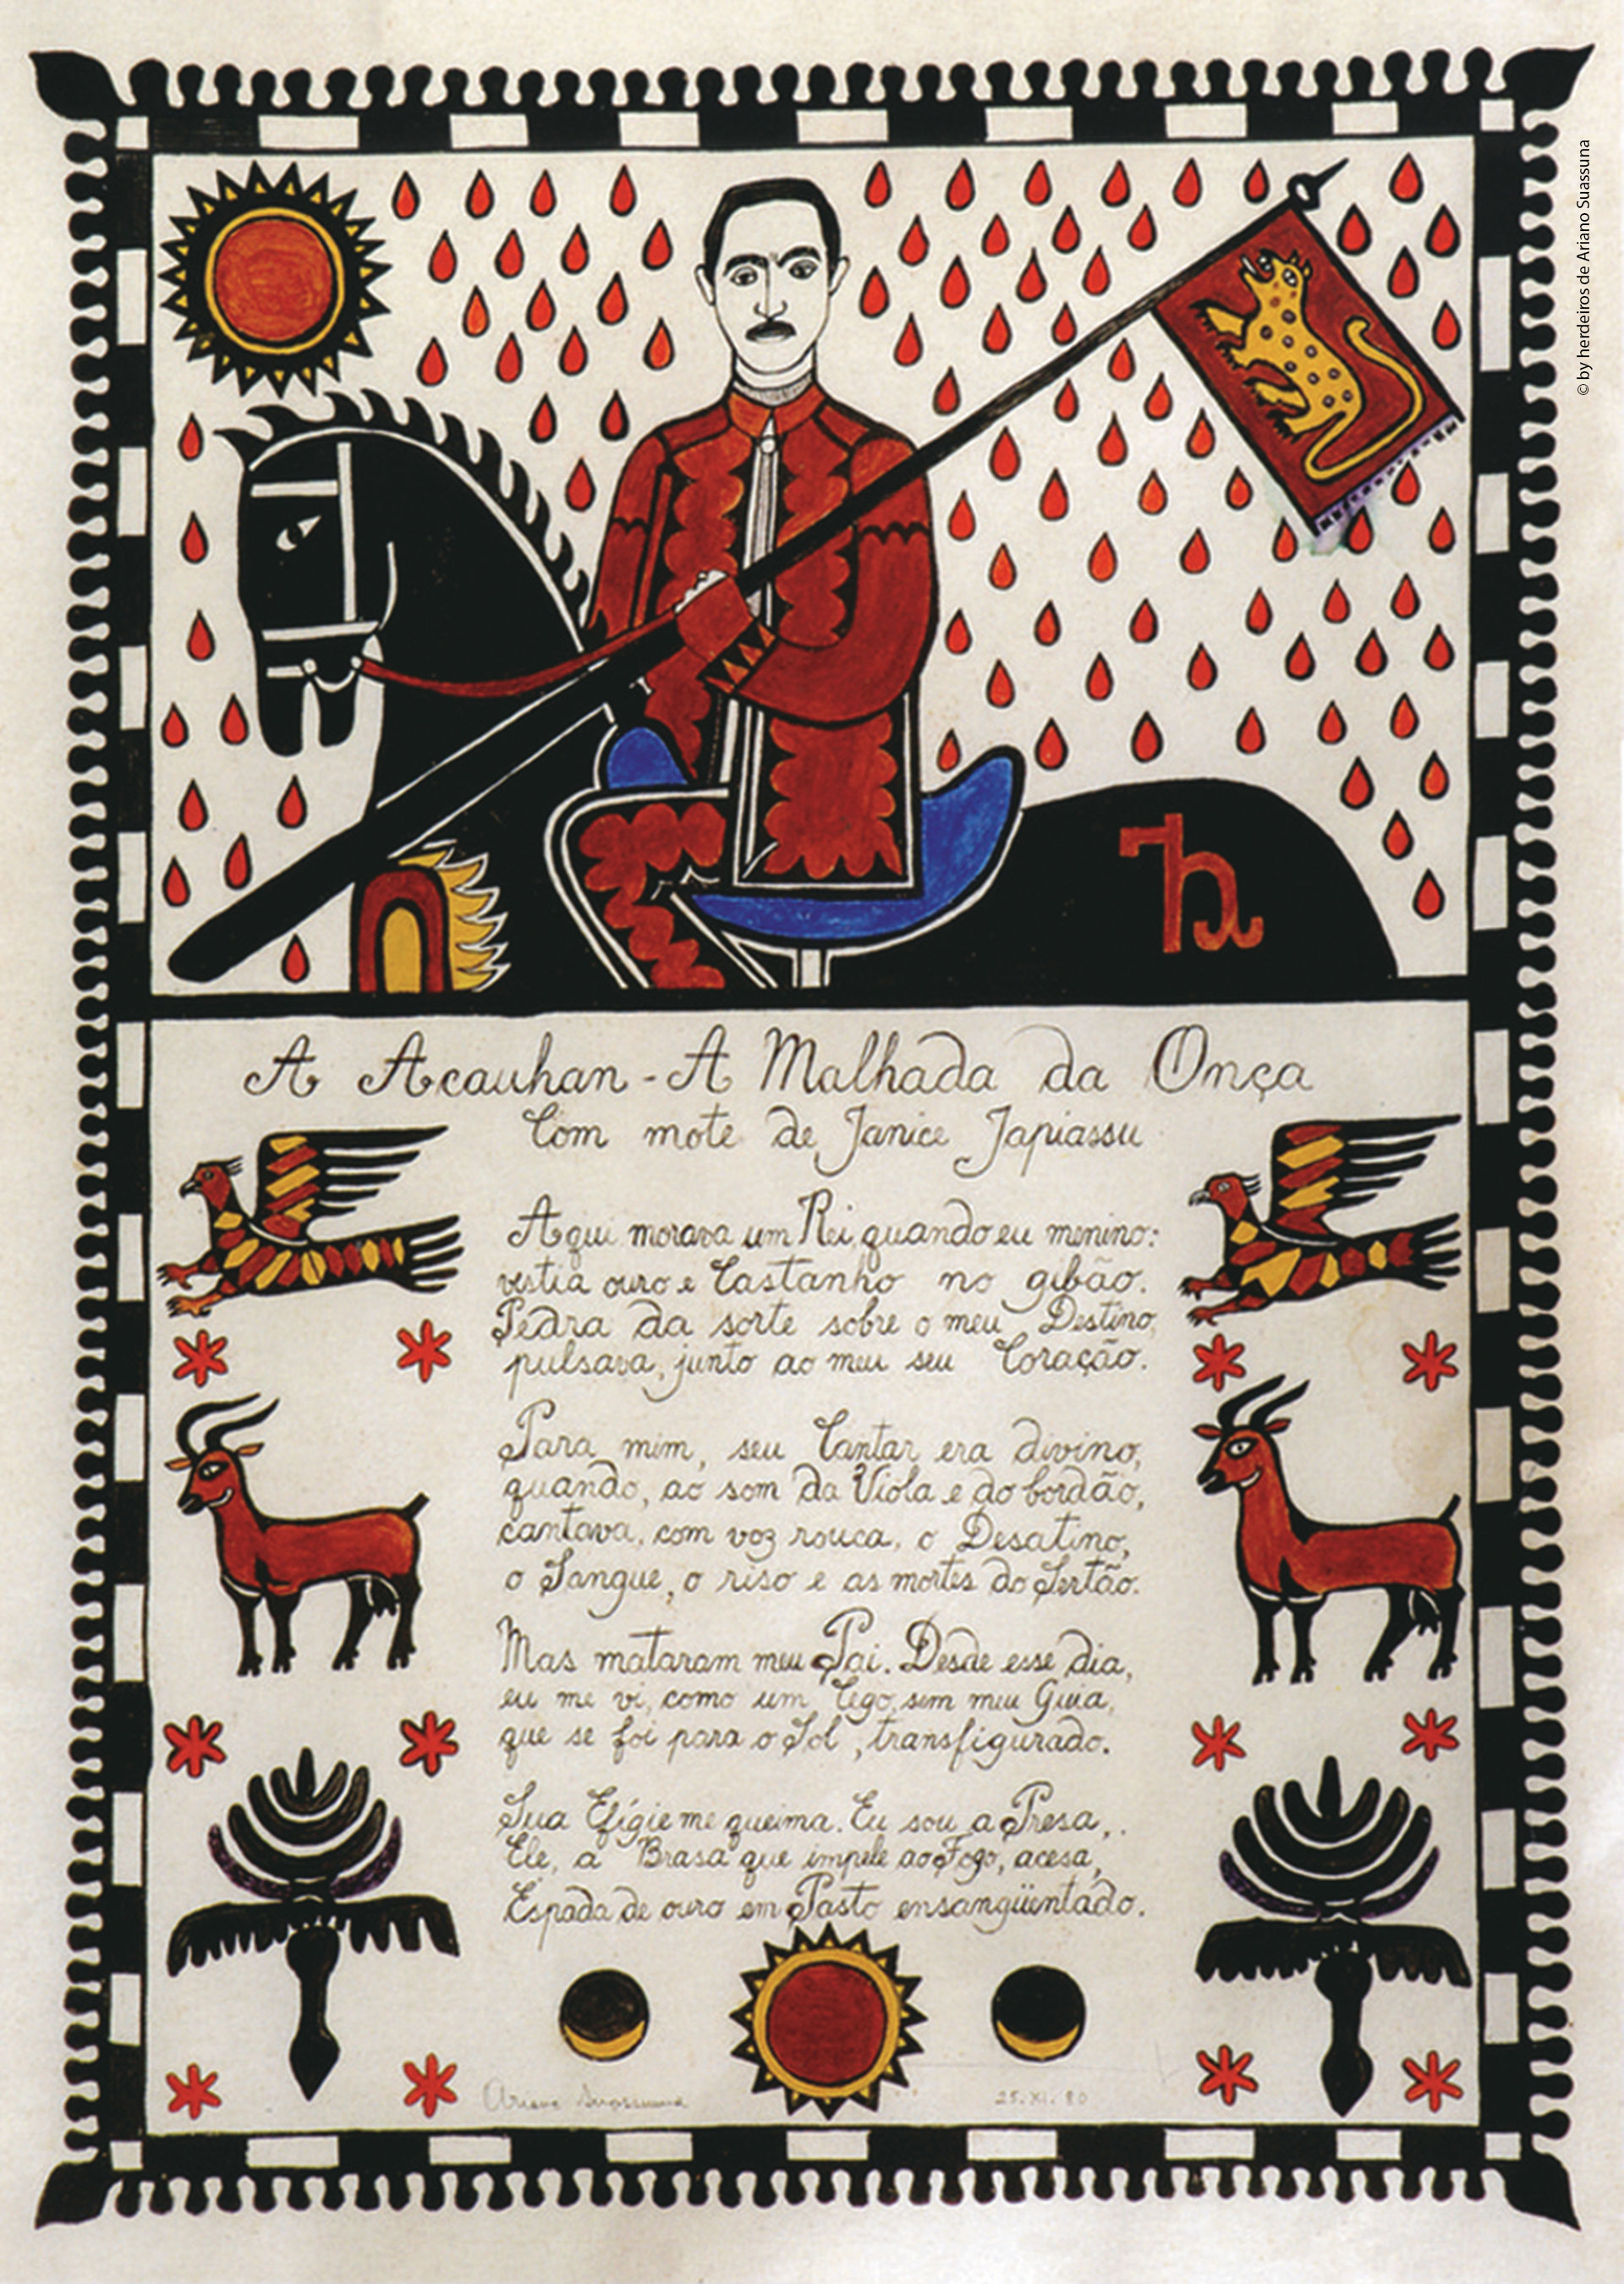 © by herdeiros de Ariano Suassuna
A Acauhan - A Malhada da Onça
Com mote de Janice Japiassu
Aqui morava um Rei, quando eu menino:
vestia ouro e Castanho no gibão.
Pedra da sorte sobre o meu Destino,
pulsava, junto ao meu seu Coração.
Para mim, seu Cantar era divino,
quando, ao som da Viola e do bordão,
cantava, com voz rouca, o Desatino,
o Sangue, o riso e as mortes do Sertão.
Mas mataram meu Pai. Desde esse dia,
eu me vi, como um Cego, sem meu Guia,
que se foi para o Sol, transfigurado.
Sua Efígie me queima. Eu sou a Presa,
Ele, a Brasa que impele ao Fogo, acesa,
Espada de ouro em Pasto ensangüentado.
Ariano Suassuna
25.XI.80